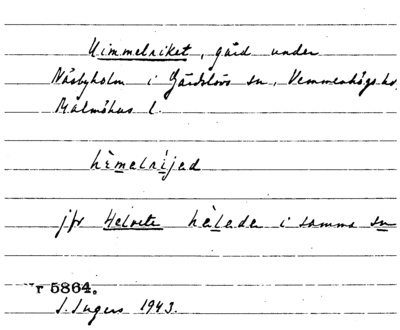 Himmelriket, gård under
Näsbyholm i Gärdslövs sn, Vemmenhögs hd,
Malmöhus l.
hèmelrìjed
jfr Helvete hèlede i samma sn
r 5864.
I. Ingers 1943.